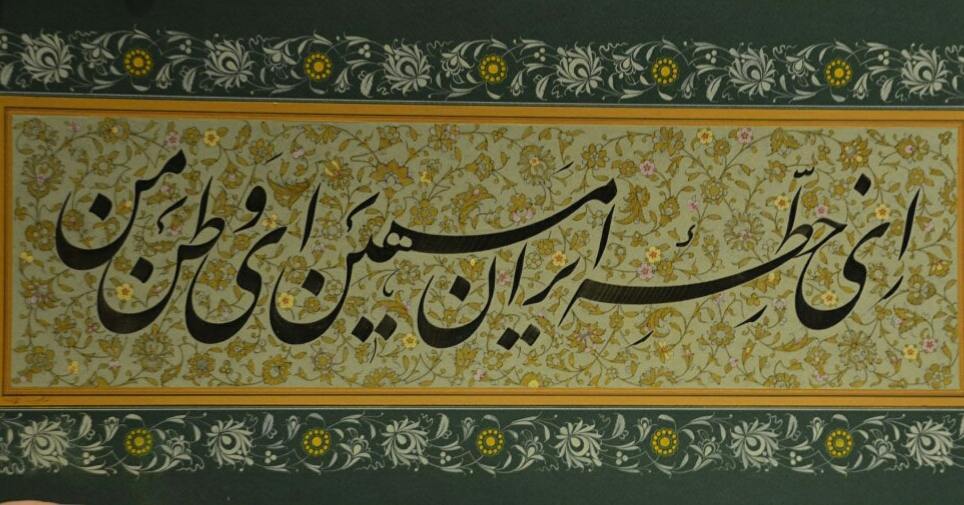 اِی خطّهٔ ایران مهین ای وطن من